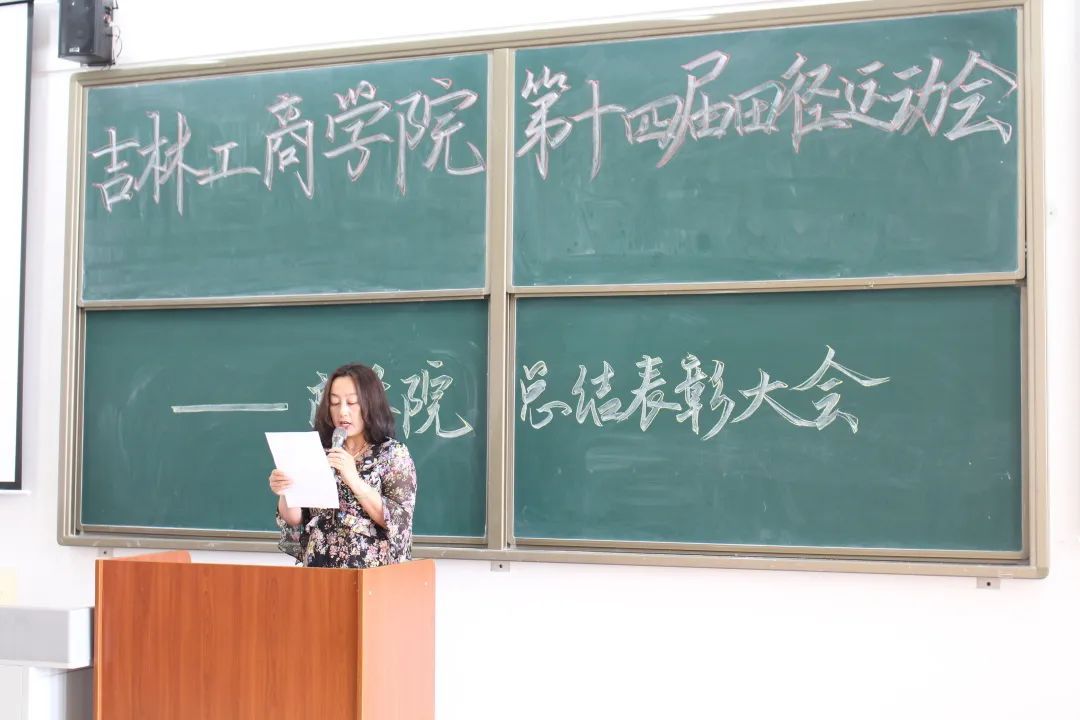 吉林工商学院 第十四届田径运动会
——商学院 总结表彰大会